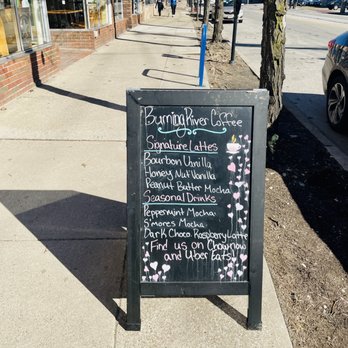 Burning River Coffee
Signature Lattes
Bourbon Vanilla
Honey Nut Vanilla
Peanut Butter Mocha
Seasonal Drinks
Peppermint Mocha
S'mores Mocha
Dark Choco Raspberry Latte
Find us on Chownow
and Uber Eats!